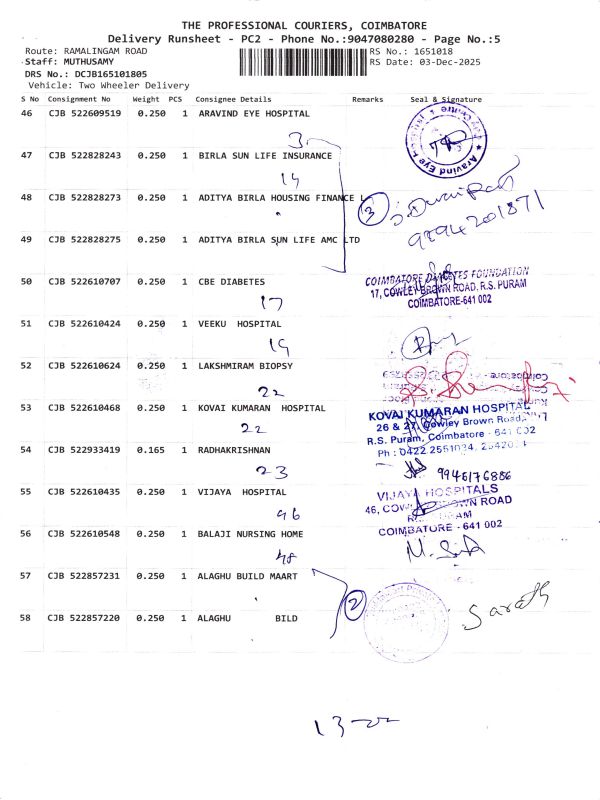 THE PROFESSIONAL COURIERS, COIMBATORE
Delivery Runsheet - PC2 - Phone No.:9047080280 - Page No.:5
Route: RAMALINGAM ROAD RS No.: 1651018
Staff: MUTHUSAMY RS Date: 03-Dec-2025
DRS No.: DCJB165101805
Vehicle: Two Wheeler Delivery
S No Consignment No Weight PCS Consignee Details Remarks Seal & Signature
46 CJB 522609519 0.250 1 ARAVIND EYE HOSPITAL
3
47 CJB 522828243 0.250 1 BIRLA SUN LIFE INSURANCE
14
48 CJB 522828273 0.250 1 ADITYA BIRLA HOUSING FINANCE L
3
9894201871
49 CJB 522828275 0.250 1 ADITYA BIRLA SUN LIFE AMC LTD
50 CJB 522610707 0.250 1 CBE DIABETES
COIMBATORE DIABETES FOUNDATION
17, COWLEY BROWN ROAD, R.S. PURAM
COIMBATORE-641 002
17
51 CJB 522610424 0.250 1 VEEKU HOSPITAL
19
52 CJB 522610624 0.250 1 LAKSHMIRAM BIOPSY
22
53 CJB 522610468 0.250 1 KOVAI KUMARAN HOSPITAL
KOVAI KUMARAN HOSPITAL
26 & 27, Cowley Brown Road,
R.S. Puram, Coimbatore - 641 002
Ph : 0422 2551034,
22
54 CJB 522933419 0.165 1 RADHAKRISHNAN
23
9946176886
55 CJB 522610435 0.250 1 VIJAYA HOSPITAL
VIJAYA HOSPITALS
46, COWLEY BROWN ROAD
COIMBATORE - 641 002
46
56 CJB 522610548 0.250 1 BALAJI NURSING HOME
48
57 CJB 522857231 0.250 1 ALAGHU BUILD MAART
2
Sarath
58 CJB 522857220 0.250 1 ALAGHU BILD
13-22